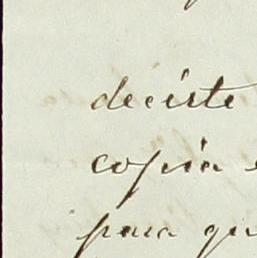 deciste
copia
para qu